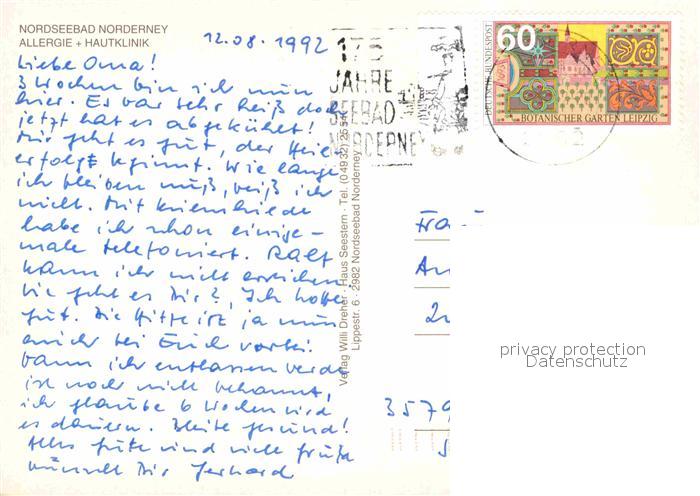 NORDSEEBAD NORDERNEY
ALLERGIE + HAUTKLINIK
12.08.1992
Liebe Oma!
3 Wochen bin ich nun
hier. Es war sehr heiß doch
jetzt hat es abgekühlt!
Mir geht es gut, der Heil-
erfolg beginnt. Wie lange
ich bleiben muß, weiß ich
nicht. Mit
habe ich schon einige-
male telefoniert. Ralf
kann ich nicht erreichen.
Wie geht es Dir?, Ich hoffe
gut. Die Hitze ist ja nun
auch bei Euch vorbei.
Wann ich entlassen werde
ist noch nicht bekannt,
ich glaube 6 Wochen wird
es dauern. Bleibe gesund!
Alles Gute und viele Grüße
wünscht Dir Gerhard
Verlag Willi Dreher · Haus Seestern · Tel. (04932)
Lippestr. 6 · 2982 Nordseebad Norderney
175
JAHRE
SEEBAD
NORDERNEY
DEUTSCHE BUNDESPOST
60
BOTANISCHER GARTEN LEIPZIG
Frau
An
3579
privacy protection
Datenschutz